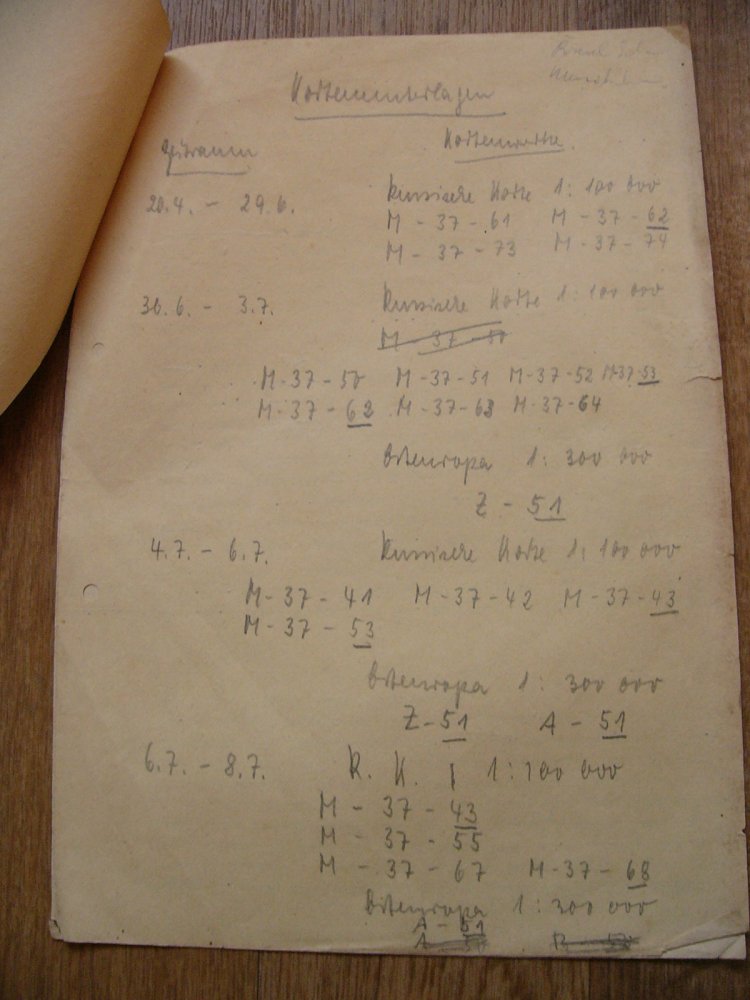 Kartenunterlagen
Zeitraum Kartenwerke
20.4. - 29.6. Russische Karte 1:100 000
M - 37 - 61 M - 37 - 62
M - 37 - 73 M - 37 - 74
30.6. - 3.7. Russische Karte 1:100 000
M - 37 - 50
M-37-50 M-37-51 M-37-52 M-37-53
M-37-62 M-37-63 M-37-64
Osteuropa 1:300 000
Z - 51
4.7. - 6.7. Russische Karte 1:100 000
M-37-41 M-37-42 M-37-43
M-37-53
Osteuropa 1:300 000
Z-51 A-51
6.7. - 8.7. R. K. 1:100 000
M - 37 - 43
M - 37 - 55
M - 37 - 67 M-37-68
Osteuropa 1:300 000
A - 51